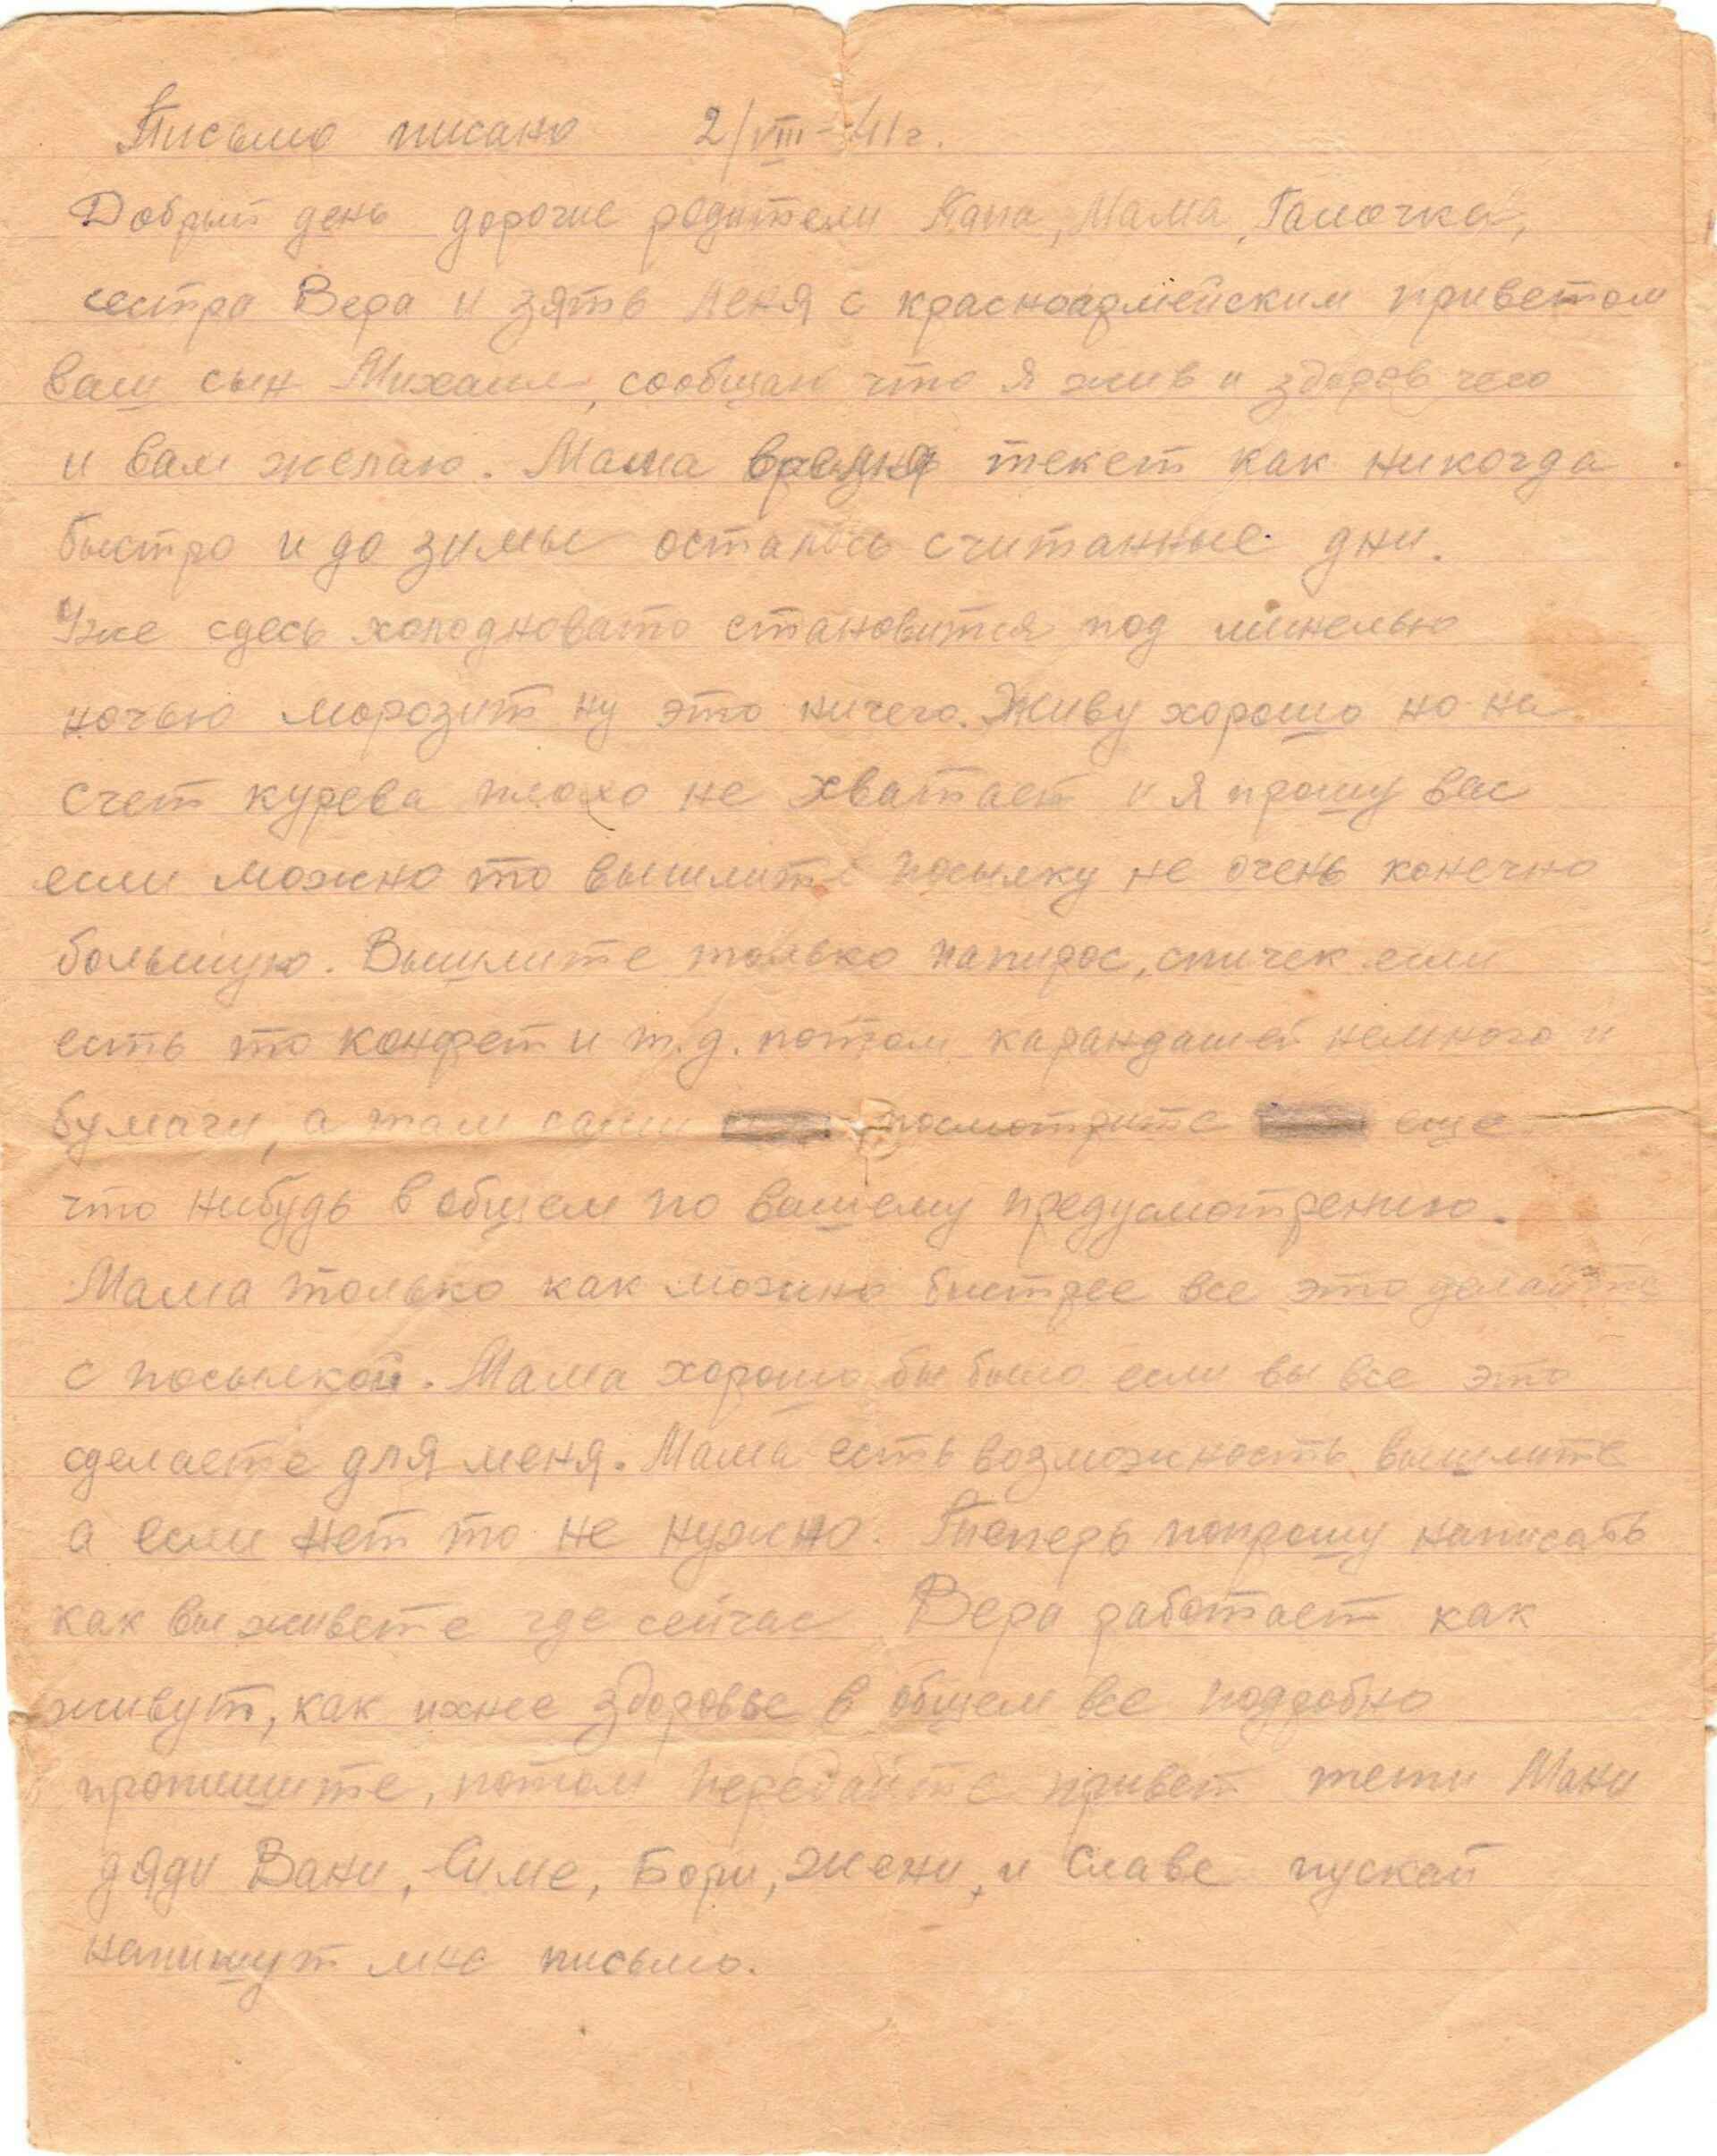 Письмо писано 2/VIII-41г.
Добрый день дорогие родители Папа, Мама, Галочка,
сестра Вера и зять Леня с красноармейским приветом
ваш сын Михаил, сообщаю что я жив и здоров чего
и вам желаю. Мама время текет как никогда
быстро и до зимы остались считанные дни.
Уже сдесь холодновато становится под шинелью
ночью морозит ну это ничего. Живу хорошо но на
счет курева плохо не хватает и я прошу вас
если можно то вышлите посылку не очень конечно
большую. Вышлите только папирос, спичек если
есть то конфет и т.д. потом карандашей немного и
бумаги, а там сами посмотрите еще
что нибудь в общем по вашему предусмотрению.
Мама только как можно быстрее все это делайте
с посылкой. Мама хорошо бы было если вы все это
сделаете для меня. Мама есть возможность вышлите
а если нет то не нужно. Теперь попрошу написать
как вы живете где сейчас Вера работает как
живут, как ихнее здоровье в общем все подробно
пропишите, потом передайте привет тети Мани
дяди Вани, Симе, Бори, Жени, и Славе пускай
напишут мне письмо.